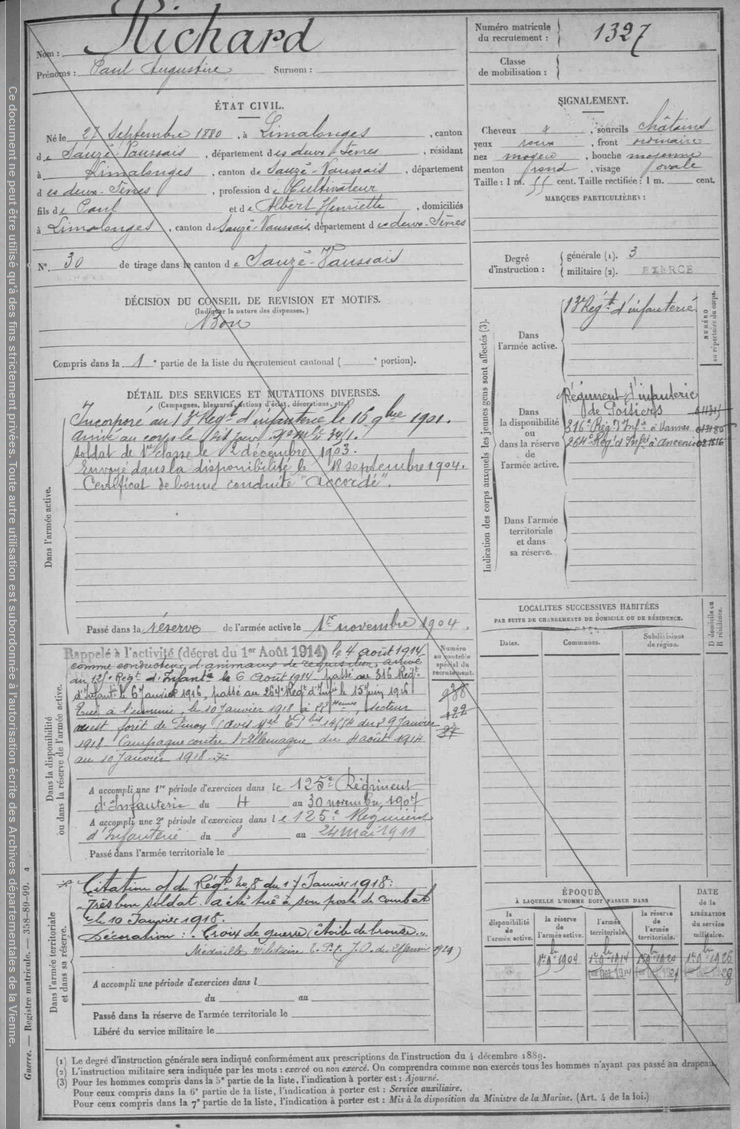 Nom : Richard
Prénoms : Paul Augustin Surnom :
Numéro matricule du recrutement : 1327
Classe de mobilisation :
ÉTAT CIVIL.
Né le 27 Septembre 1880, à Limalonges, canton
de Sauzé-Vaussais, département des deux-Sèvres, résidant
à Limalonges, canton de Sauzé-Vaussais, département
des deux-Sèvres, profession de Cultivateur
fils de Paul et de Albert Henriette, domiciliés
à Limalonges, canton de Sauzé-Vaussais département des deux-Sèvres
N° 30 de tirage dans le canton de Sauzé-Vaussais
SIGNALEMENT.
Cheveux sourcils châtains
yeux roux, front ordinaire
nez moyen, bouche moyenne
menton rond, visage ovale
Taille : 1 m. 55 cent. Taille rectifiée : 1 m. cent.
MARQUES PARTICULIÈRES :
Degré d'instruction : générale (1). 3
militaire (2). EXERCÉ
DÉCISION DU CONSEIL DE REVISION ET MOTIFS.
(Indiquer la nature des dispenses.)
Bon
Compris dans la 1e partie de la liste du recrutement cantonal ( e portion).
DÉTAIL DES SERVICES ET MUTATIONS DIVERSES.
(Campagnes, blessures, actions d'éclat, décorations, etc.)
Dans l'armée active.
Incorporé au 13e Régt d'infanterie le 16 9bre 1901.
arrivé au corps le dit jour. No Mle 3471.
soldat de 1ère classe le 12 décembre 1903.
Envoyé dans la disponibilité le 18 septembre 1904.
Certificat de bonne conduite "accordé".
Passé dans la réserve de l'armée active le 1er novembre 1904.
Indication des corps auxquels les jeunes gens sont affectés (3).
NUMÉRO au répertoire du corps.
Dans l'armée active.
13e Régt d'infanterie
Dans la disponibilité ou dans la réserve de l'armée active.
Régiment d'infanterie
de Poitiers
316e Rég. d'Infie à Vannes
264e Rég. d'Infie à Ancenis
Dans l'armée territoriale et dans sa réserve.
LOCALITÉS SUCCESSIVES HABITÉES
PAR SUITE DE CHANGEMENTS DE DOMICILE OU DE RÉSIDENCE.
Dates. Communes. Subdivisions de région. D domicile ou R résidence.
Dans la disponibilité ou dans la réserve de l'armée active.
Numéro au contrôle spécial du recrutement.
Rappelé à l'activité (décret du 1er Août 1914) le 4 août 1914
comme conducteur d'animaux de réquisition, arrivé
au 125e Régt d'Infantie le 6 Août 1914. passé au 316 Régt
d'Infant. le 6 Janvier 1916, passé au 264e Régt d'Infie le 15 juin 1916
Tué à l'ennemi, le 10 Janvier 1918 à secteur
ouest forêt de Pinon (avis du 29 Janvier
1918. Campagne contre l'Allemagne du 4 août 1914
au 10 Janvier 1918.
938
122
A accompli une 1re période d'exercices dans le 125e Régiment
d'Infanterie du 4 au 30 novembre 1907
A accompli une 2e période d'exercices dans le 125e Régiment
d'Infanterie du 8 au 24 Mai 1911
Passé dans l'armée territoriale le
Dans l'armée territoriale et dans sa réserve.
Citation O/ du Régt No 8 du 17 Janvier 1918 :
Très bon soldat a été tué à son poste de combat
le 10 Janvier 1918.
Décoration : Croix de guerre, étoile de bronze.
Médaille militaire
A accompli une période d'exercices dans l
du au
Passé dans la réserve de l'armée territoriale le
Libéré du service militaire le
ÉPOQUE
À LAQUELLE L'HOMME DOIT PASSER DANS
la disponibilité de l'armée active. la réserve de l'armée active. l'armée territoriale. la réserve de l'armée territoriale.
DATE de la LIBÉRATION du service militaire.
1er 9e 1904 1er 9e 1914 1er 9e 1920 1er 9e 1926
(1) Le degré d'instruction générale sera indiqué conformément aux prescriptions de l'instruction du 4 décembre 1889.
(2) L'instruction militaire sera indiquée par les mots : exercé ou non exercé. On comprendra comme non exercés tous les hommes n'ayant pas passé au drapeau.
(3) Pour les hommes compris dans la 5e partie de la liste, l'indication à porter est : Ajourné.
Pour ceux compris dans la 6e partie de la liste, l'indication à porter est : Service auxiliaire.
Pour ceux compris dans la 7e partie de la liste, l'indication à porter est : Mis à la disposition du Ministre de la Marine. (Art. 4 de la loi.)
Guerre. — Registre matricule. — 358-89-99.
Ce document ne peut être utilisé qu'à des fins strictement privées. Toute autre utilisation est subordonnée à l'autorisation écrite des Archives départementales de la Vienne.